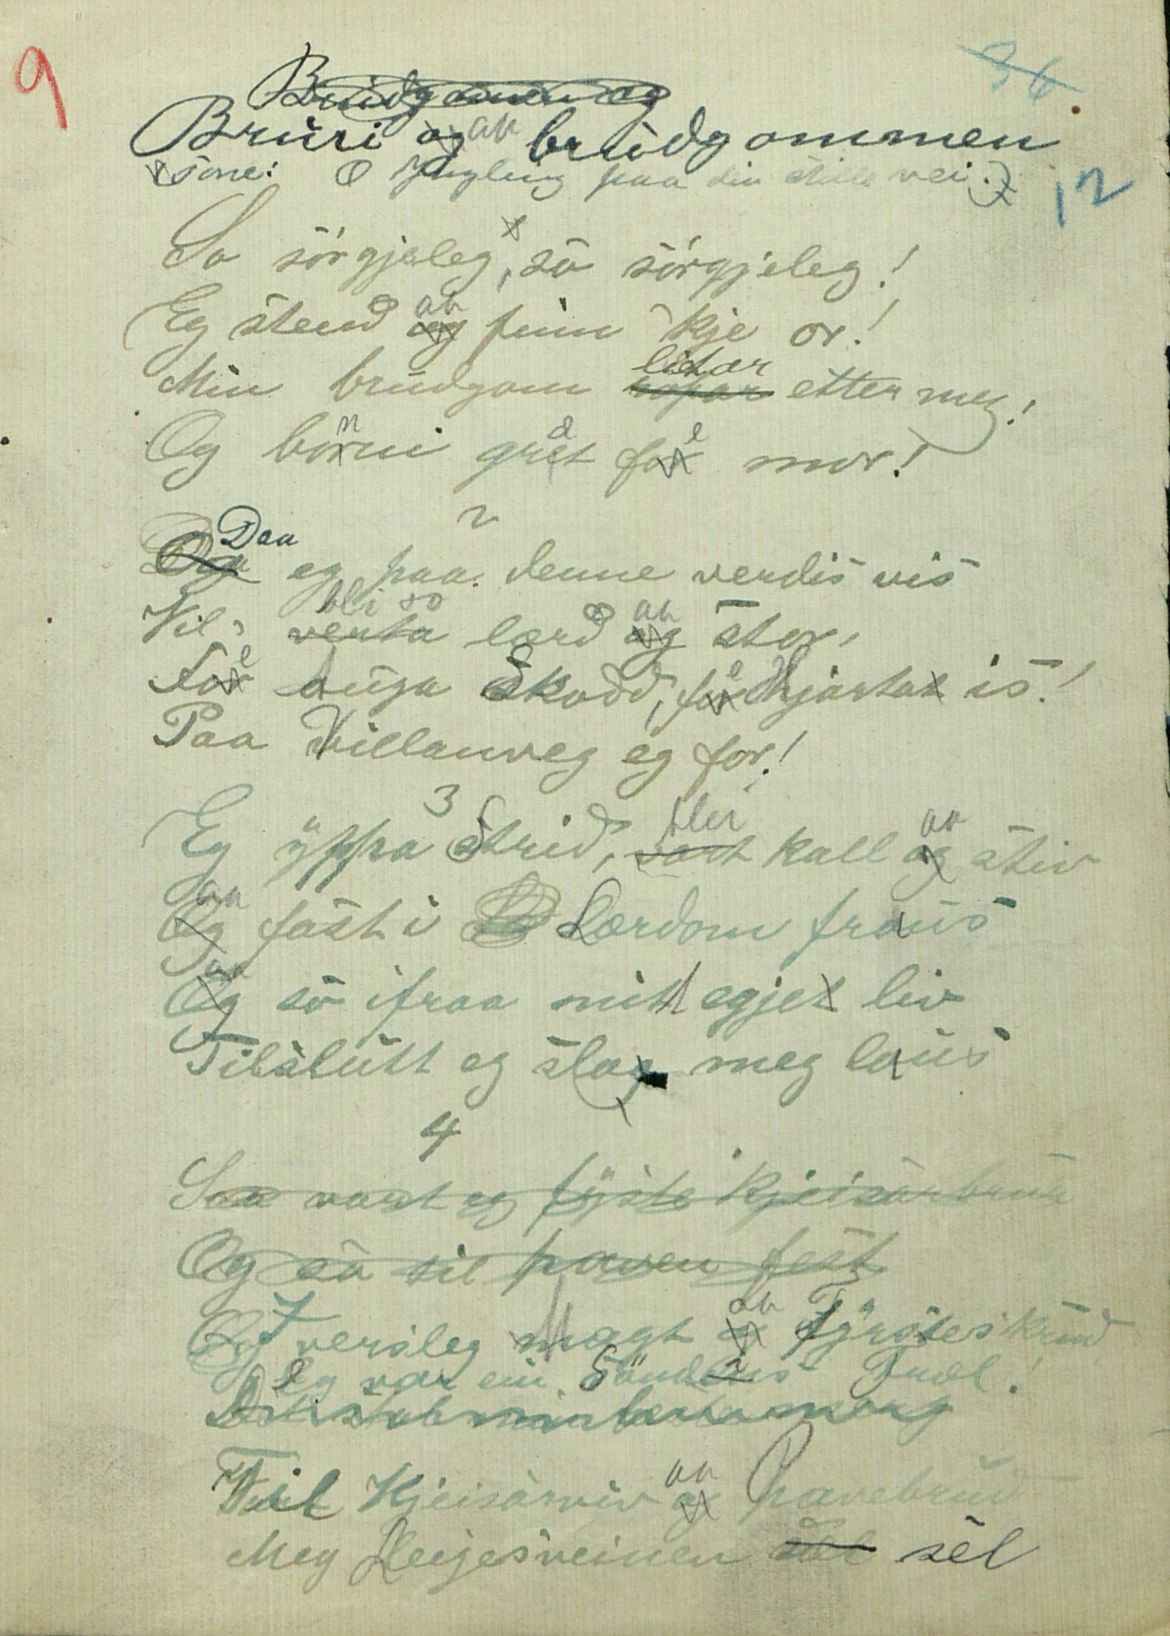 9
36
Brudgommen og
Bruri og an brudgommen
(Tone: O Yngling paa din stille vei.)
12
So sörgjeleg, so sörgjeleg!
Eg stend og an finn kje or!
Min brudgom ropar leitar etter meg!
Og borni gret for mor!
2
Og Daa eg paa denne verdis vis
Vil venta bli so lærd og an stor,
For auga Skodd, for hjartat is!
Paa Villanveg eg for!
3
Eg yppa Strid, vart blei kall og an stiv
Og an fast i Lærdom fraus
Og an so ifraa mitt egjet liv
Tilslutt eg slog meg laus
4
Saa vart eg fyste Kjeisarbrud
Og so til paven fest
I versleg magt og an Fyrsteskrud
Eg var ein Söndens Træl!
Til Kjeisarviv og an Pavebrud
Meg Leigesveinen sel